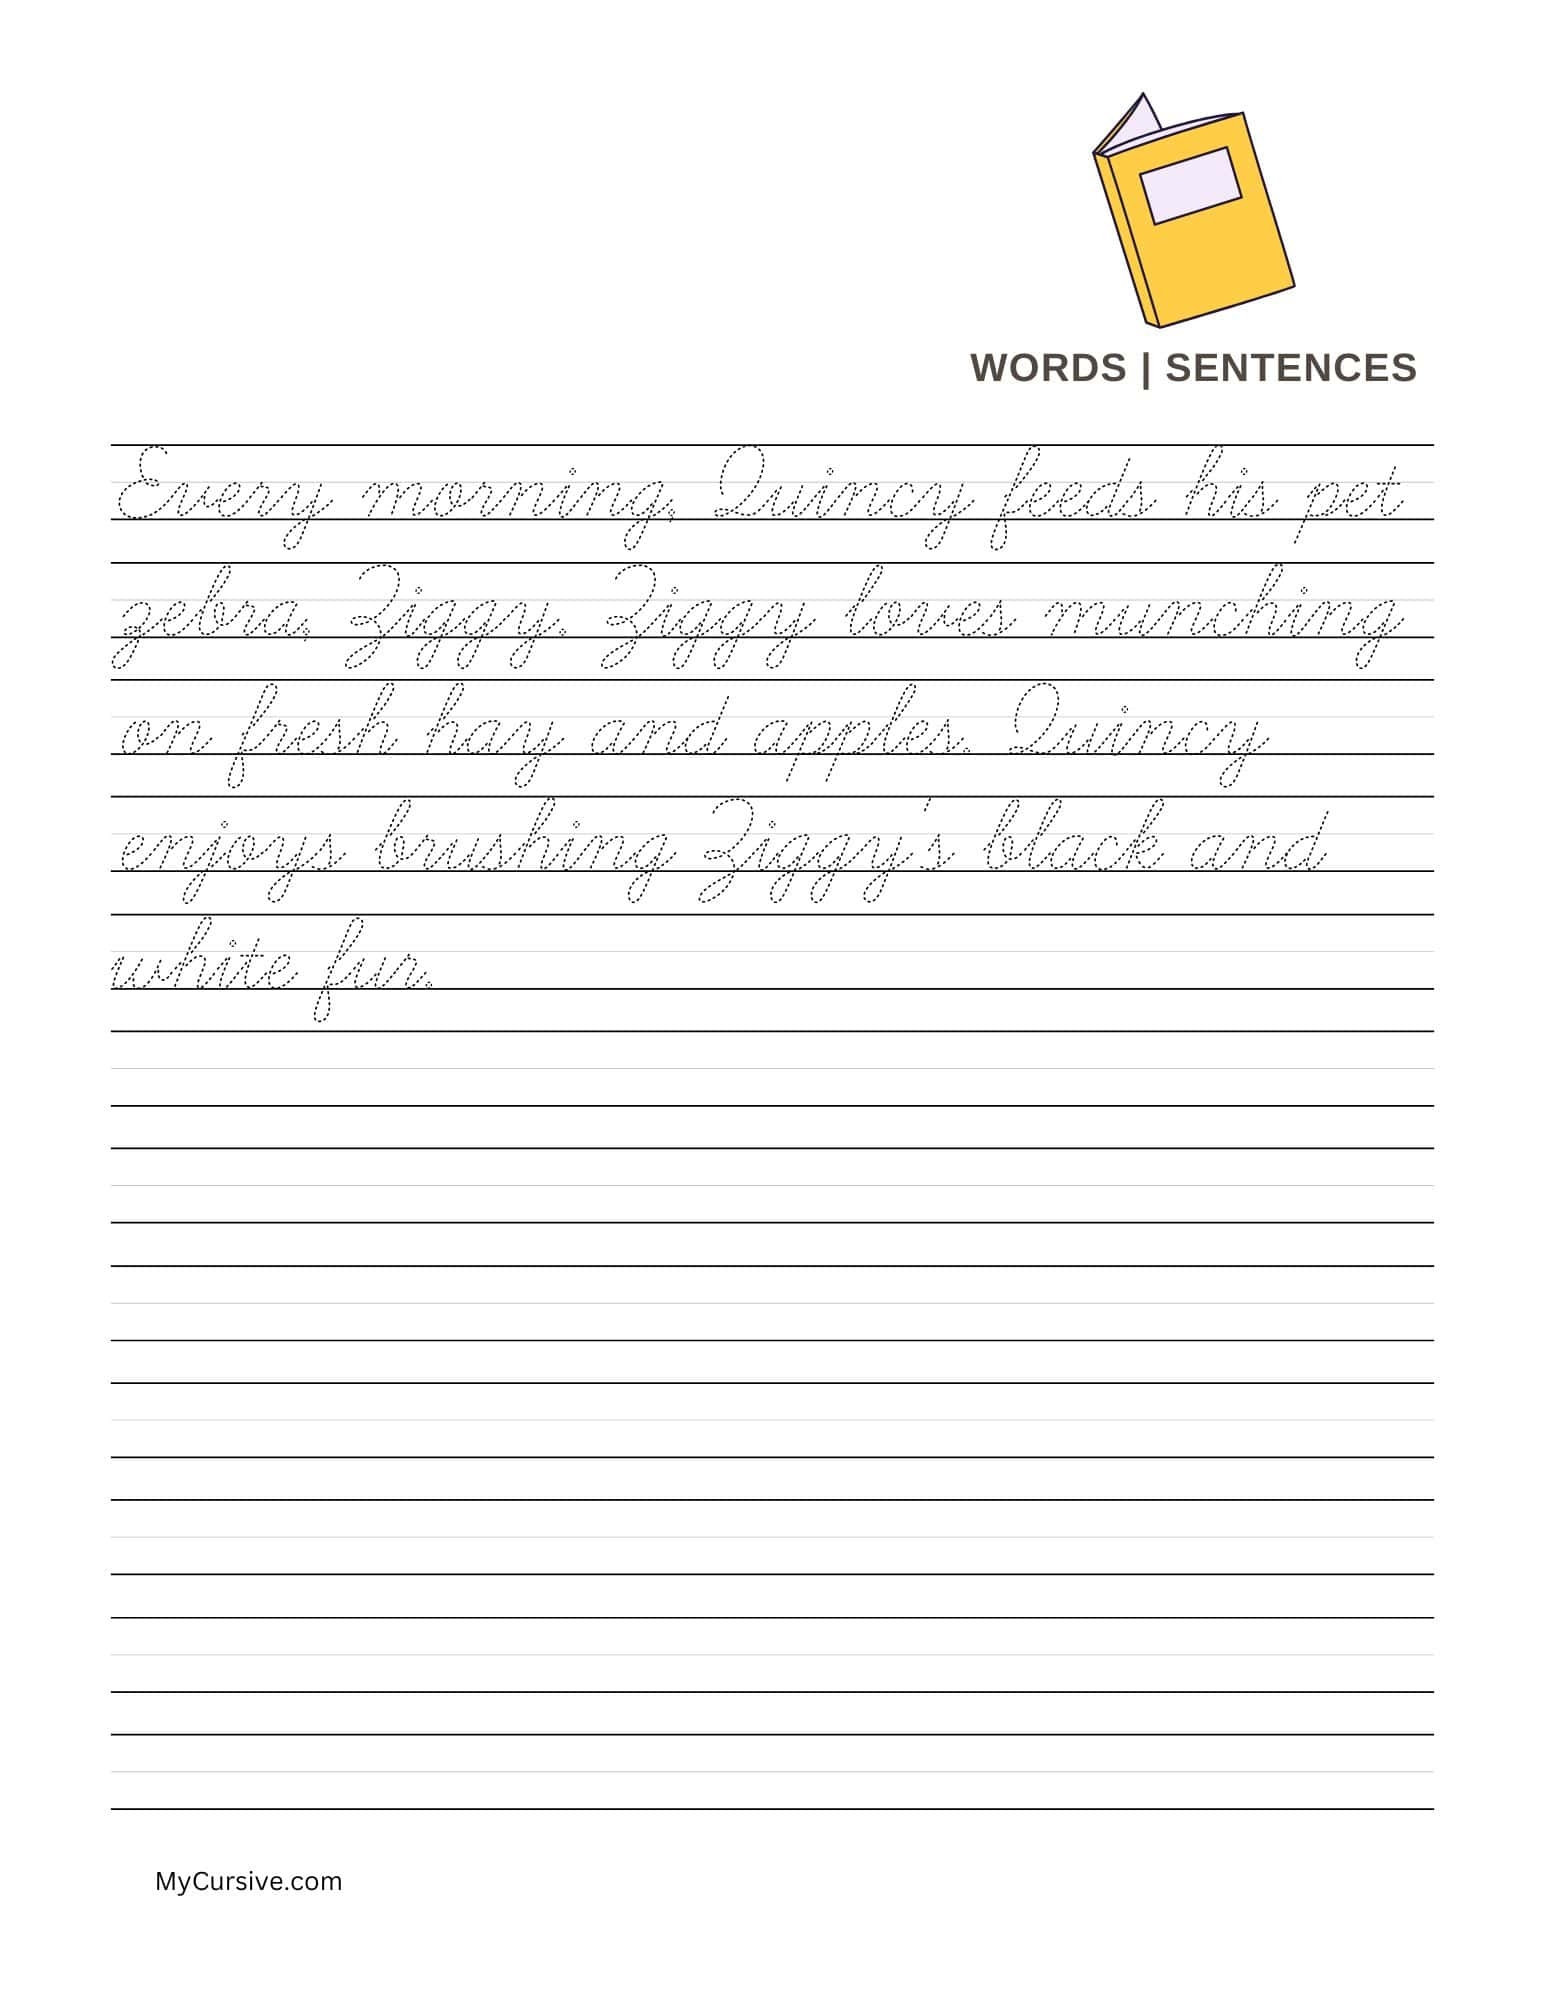 WORDS | SENTENCES
Every morning, Quincy feeds his pet
zebra, Ziggy. Ziggy loves munching
on fresh hay and apples. Quincy
enjoys brushing Ziggy's black and
white fur.
MyCursive.com